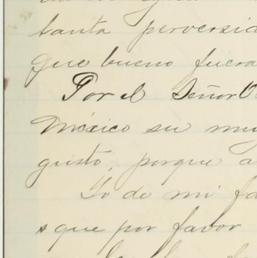 tanta perversid
que bueno fuera
Por el Señor O
México su muy
gusto, porque a
Yo de mi fa
s que por favor